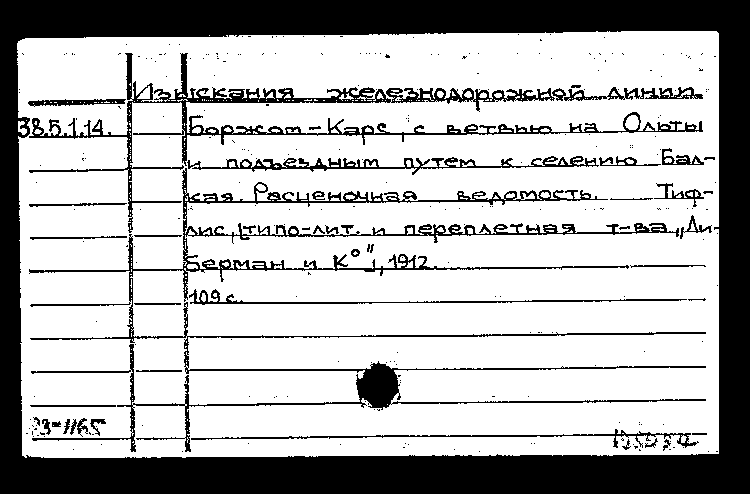 Изыскания железнодорожной линии
38.5.1.14. Боржом-Карс, с ветвью на Ольты
и подъездным путем к селению Бал-
кая. Расценочная ведомость. Тиф-
лис, [типо-лит. и переплетная т-ва „Ли-
берман и К°"], 1912.
109 с.